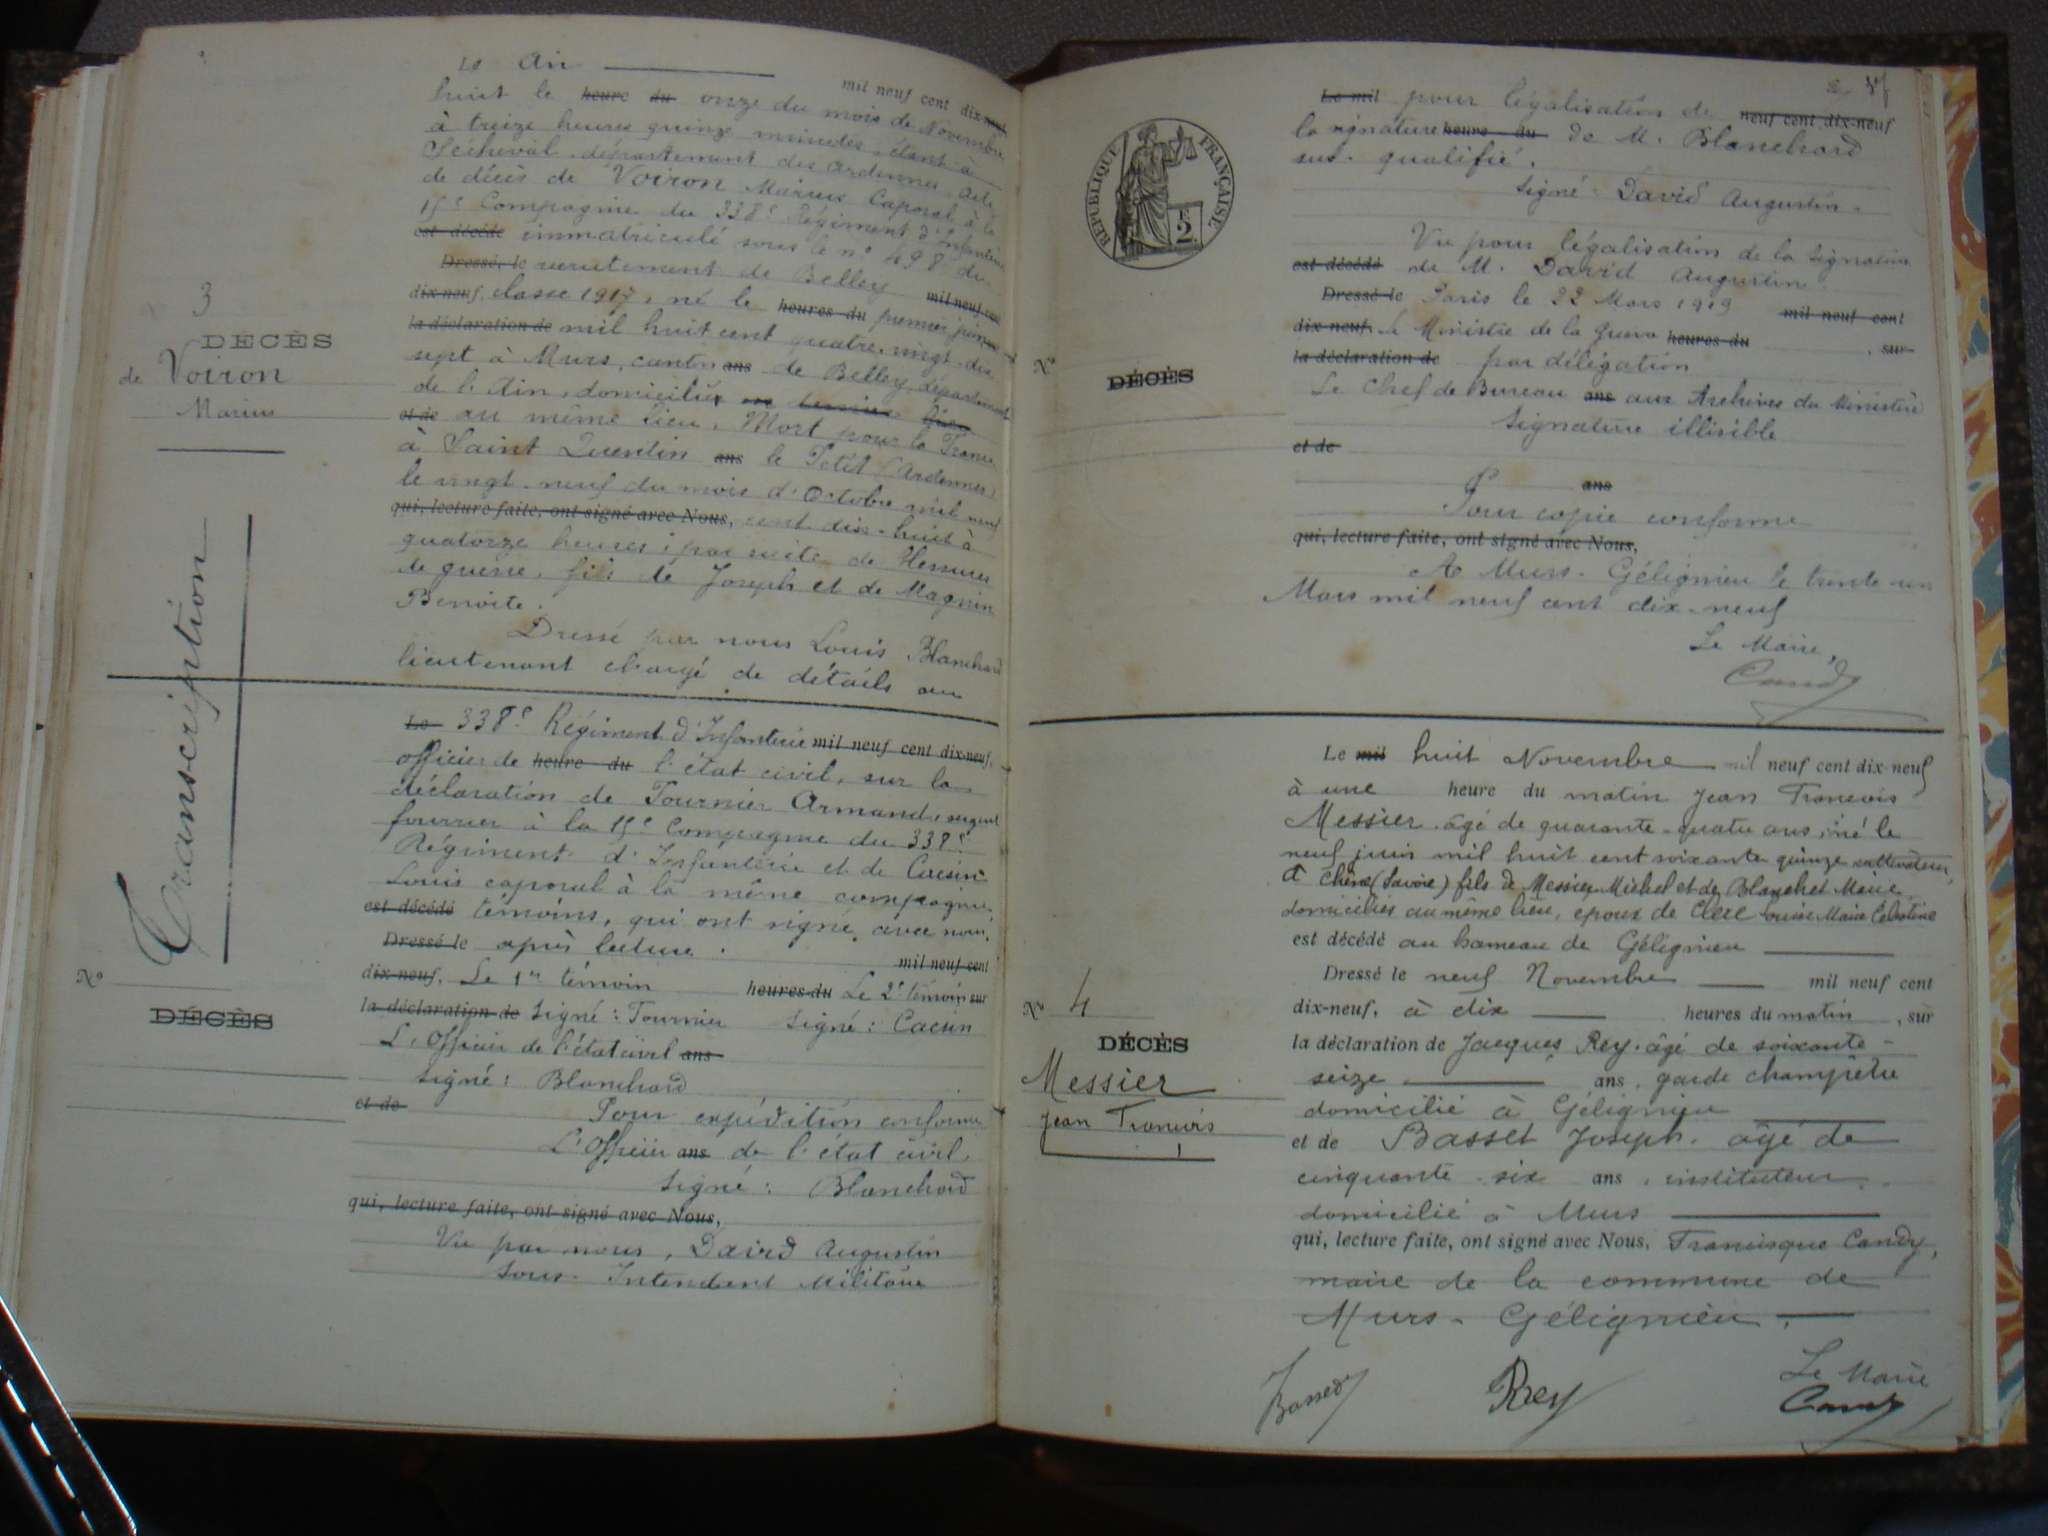 Le An mil neuf cent dix-neuf
huit le heure du onze du mois de Novembre
à treize heures quinze minutes, étant à
Sécheval, département des Ardennes, acte
de décès de Voiron Marius Caporal à la
15e Compagnie du 338e Régiment d'Infanterie
est décédé immatriculé sous le no 498 du
Dressé le recrutement de Belley mil neuf cent
dix-neuf, classe 1917, né le heures du premier
la déclaration de mil huit cent quatre-vingt-dix
sept à Murs, canton ans de Belley, département
de l'Ain, domicilié
et de au même lieu. Mort pour la France
à Saint Quentin ans le Petit (Ardennes)
le vingt-neuf du mois d'Octobre mil neuf
qui, lecture faite, ont signé avec Nous, cent dix-huit à
quatorze heures; par suite de Blessures
de guerre, fils de Joseph et de Magnin
Benoite.
Dressé par nous Louis Blanchard
lieutenant chargé de détails au
3
DÉCÈS
de Voiron
Marius
Transcription
Le 338e Régiment d'Infanterie mil neuf cent dix-neuf,
officier de heure du l'état civil, sur la
déclaration de Tournier Armand, sergent
fourrier à la 15e Compagnie du 338e
Régiment d'Infanterie et de Cacsin
Louis caporal à la même compagnie,
est décédé témoins, qui ont signé avec nous,
Dressé le après lecture. mil neuf cent
dix-neuf, Le 1er témoin heures du Le 2e témoin sur
la déclaration de Signé: Tournier Signé: Cacsin
L'Officier de l'état civil ans
signé: Blanchard
et de Pour expédition conforme
L'Officier ans de l'état civil,
signé: Blanchard
qui, lecture faite, ont signé avec Nous,
Vu par nous, David Augustin
Sous-Intendant Militaire
No
DÉCÈS
Le mil pour légalisation de neuf cent dix-neuf
la signature heure du de M. Blanchard
sus-qualifié.
Signé: David Augustin.
Vu pour légalisation de la signature
est décédé de M. David Augustin
Dressé le Paris le 22 Mars 1919 mil neuf cent
dix-neuf, le Ministre de la guerre heures du , sur
la déclaration de par délégation
Le Chef de Bureau ans aux Archives du Ministère
Signature illisible
et de
ans
Pour copie conforme
qui, lecture faite, ont signé avec Nous,
A Murs-Gélignieu le trente-un
Mars mil neuf cent dix-neuf
Le Maire,
Candy
RÉPUBLIQUE FRANÇAISE
2
No
DÉCÈS
Le mil huit Novembre mil neuf cent dix-neuf
à une heure du matin Jean François
Messier, âgé de quarante-quatre ans, né le
neuf juin mil huit cent soixante quinze cultivateur,
à Chène (Savoie) fils de Messier Michel et de Blanchet Marie
domiciliés au même lieu, époux de Clerc Louise Marie Célestine
est décédé au hameau de Gélignieu
Dressé le neuf Novembre mil neuf cent
dix-neuf, à dix heures du matin, sur
la déclaration de Jacques Rey, âgé de soixante-
seize ans, garde champêtre
domicilié à Gélignieu
et de Basset Joseph, âgé de
cinquante-six ans, instituteur
domicilié à Murs
qui, lecture faite, ont signé avec Nous, Francisque Candy,
maire de la commune de
Murs-Gélignieu.
No 4
DÉCÈS
Messier
Jean François
Basset Rey Le Maire
Candy